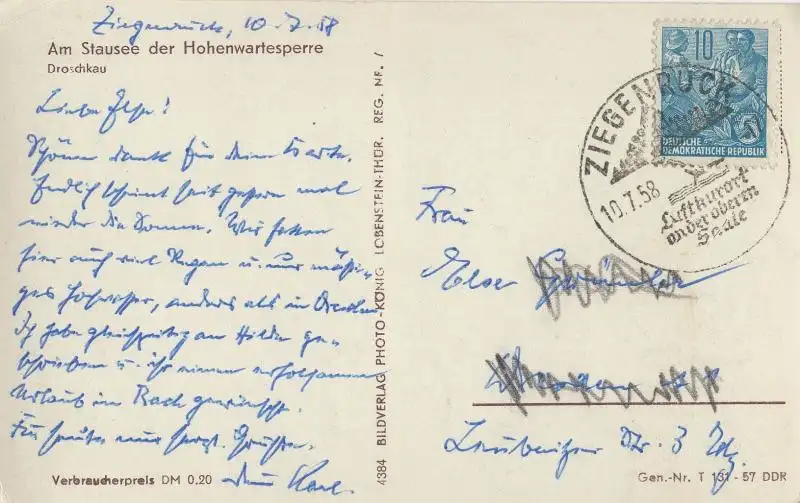 Ziegenrück, 10.7.58
Am Stausee der Hohenwartesperre
Droschkau
Liebe Else!
Schönen Dank für Deine Karte.
Endlich scheint seit gestern mal
wieder die Sonne. Wir hatten
hier auch viel Regen u. nur mäßi-
ges Hochwasser, anders als in Dresden.
Ich habe gleichzeitig an Hilde ge-
schrieben u. ihr einen erholsamen
Urlaub in gewünscht.
Für heute nur herzl. Grüße.
Dein Karl
Verbraucherpreis DM 0.20
4384 BILDVERLAG PHOTO-KÖNIG LOBENSTEIN-THÜR. REG. NR. /
10
DEUTSCHE
DEMOKRATISCHE REPUBLIK
5
ZIEGENRÜCK
10.7.58
Luftkurort
an der oberen
Saale
Frau
Else
Str. 3
Gen.-Nr. T 131-57 DDR